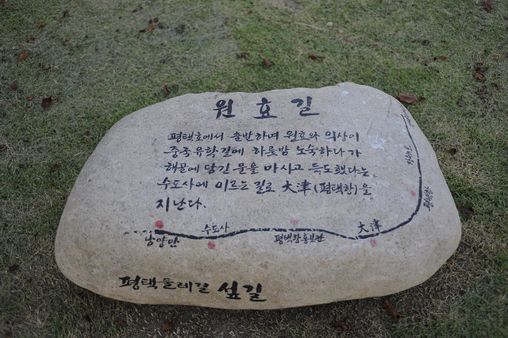 원효길
평택호에서 출발하며 원효와 의상이
중국유학길에 하룻밤 노숙하다가
해골에 담긴 물을 마시고 득도했다는
수도사에 이르는 길로 大津(평택항)을
지난다.
남양만
수도사
평택항홍보관
大津
평택둘레길 섶길